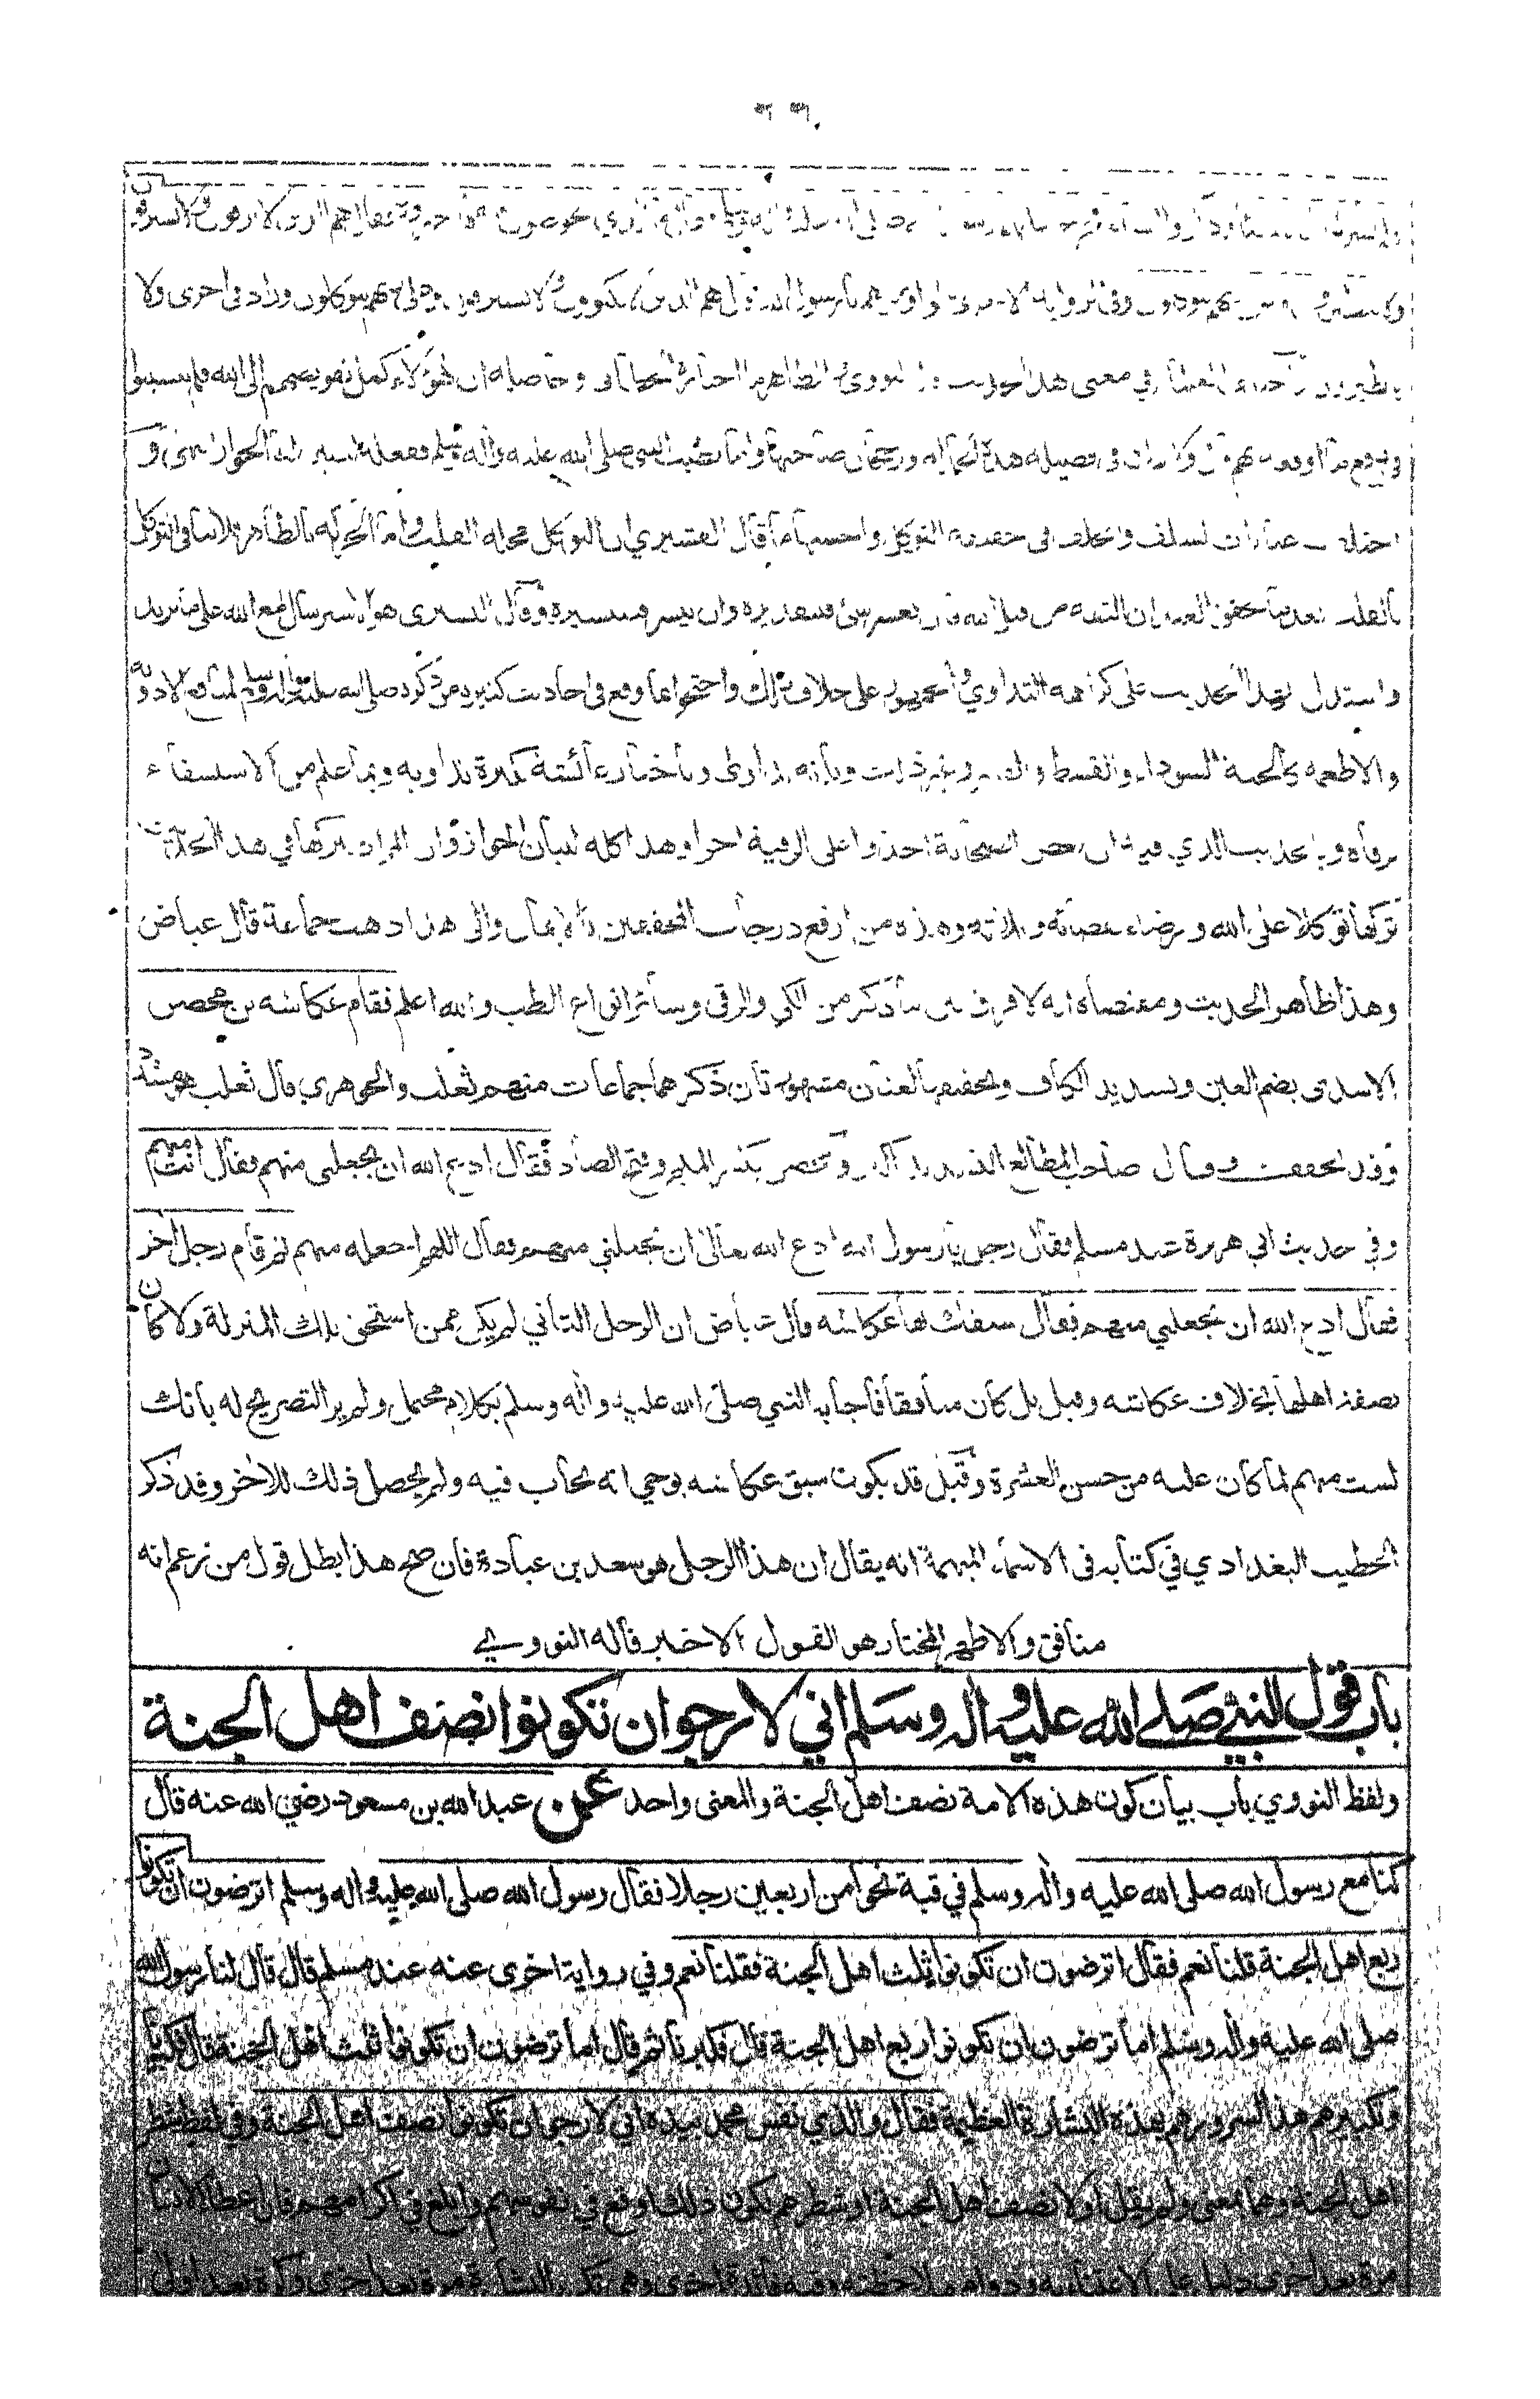 هم الذين لا يرقون ولا يسترقون
وفي الرواية هم يا رسول الله قال هم الذين لا يكتوون ولا يسترقون وعلى ربهم يتوكلون وزاد في اخرى ولا
يتطيرون في معنى هذا الحديث وحاصله ان هؤلاء كمل تفويضهم الى الله فلم يتسببوا
في دفع ما اوقعه بهم في فضيلة هذه الحالة ورجحان صاحبها واما تطبب النبي صلى الله عليه واله وسلم ففعله ليبين لنا الجواز
عبارات السلف والخلف في حقيقة التوكل واحسنها ما قال القشيري ان التوكل محله القلب واما الحركة بالظاهر فلا ينافي التوكل
بالقلب بعد ما تحقق العبد ان الثقة من قبل الله فان تعسر شئ فبتقديره وان تيسر فبتيسيره وقال التستري هو الاسترسال مع الله على ما يريد
واستدل بهذا الحديث على كراهة التداوي والجمهور على خلاف ذلك واحتجوا بما وقع في احاديث كثيرة من ذكره صلى الله عليه واله وسلم لمنافع الادوية
والاطعمة كالحبة السوداء والقسط وغير ذلك وبانه تداوى وباخبار عائشة بكثرة تداويه وبما علم من الاستشفاء
برقاه وبالحديث الذي فيه ان بعض الصحابة اخذوا على الرقية اجرا وهذا كله لبيان الجواز وان المراد بتركها في هذا الحديث
تركها توكلا على الله ورضاء بقضائه وبلائه وهذه من ارفع درجات المحققين بالايمان والى هذا ذهبت جماعة قال عياض
وهذا ظاهر الحديث ومقتضاه انه لا فرق بين ما ذكر من الكي والرقى وسائر انواع الطب والله اعلم فقام عكاشة بن محصن
الاسدي بضم العين وتشديد الكاف وتخفيفها لغتان مشهورتان ذكرهما جماعات منهم ثعلب والجوهري قال ثعلب هو مشدد
وقد تخفف وقال صاحب المطالع التشديد اكثر ومحصن بكسر الميم وفتح الصاد فقال ادع الله ان يجعلني منهم فقال انت منهم
وفي حديث ابي هريرة عند مسلم فقال رجل يا رسول الله ادع الله تعالى ان يجعلني منهم فقال اللهم اجعله منهم ثم قام رجل اخر
فقال ادع الله ان يجعلني منهم فقال سبقك بها عكاشة قال عياض ان الرجل الثاني لم يكن ممن استحق تلك المنزلة ولا كان
بصفة اهلها بخلاف عكاشة وقيل بل كان منافقا فاجابه النبي صلى الله عليه واله وسلم بكلام محتمل ولم ير التصريح له بانك
لست منهم لما كان عليه من حسن العشرة وقيل قد يكون سبق عكاشة بوحي انه يجاب فيه ولم يحصل ذلك للاخر وقد ذكر
الخطيب البغدادي في كتابه في الاسماء المبهمة انه يقال ان هذا الرجل هو سعد بن عبادة فان صح هذا بطل قول من زعم انه
منافق والاظهر المختار هو القول الاخير قاله النووي
باب قول النبي صلى الله عليه واله وسلم اني لارجو ان تكونوا نصف اهل الجنة
ولفظ النووي باب بيان كون هذه الامة نصف اهل الجنة والمعنى واحد عن عبد الله بن مسعود رضي الله عنه قال
كنا مع رسول الله صلى الله عليه واله وسلم في قبة نحوا من اربعين رجلا فقال رسول الله صلى الله عليه واله وسلم اترضون ان تكونوا
ربع اهل الجنة قلنا نعم فقال اترضون ان تكونوا ثلث اهل الجنة فقلنا نعم وفي رواية اخرى عنه عند مسلم قال قال لنا رسول الله
صلى الله عليه واله وسلم اما ترضون ان تكونوا ربع اهل الجنة قال فكبرنا ثم قال اما ترضون ان تكونوا ثلث اهل الجنة قال فكبرنا
وتكبيرهم هذا لسرورهم بهذه البشارة العظيمة فقال والذي نفس محمد بيده اني لارجو ان تكونوا نصف اهل الجنة وفي لفظ شطر
اهل الجنة وهما معنى ولم يقل اولا نصف اهل الجنة او شطرهم لكون ذلك اوقع في نفوسهم وابلغ في اكرامهم فان اعطاء الانسان
مرة بعد اخرى دليل على الاعتناء به ودوام ملاحظته وفيه فائدة اخرى وهي تكرير البشارة مرة بعد اخرى